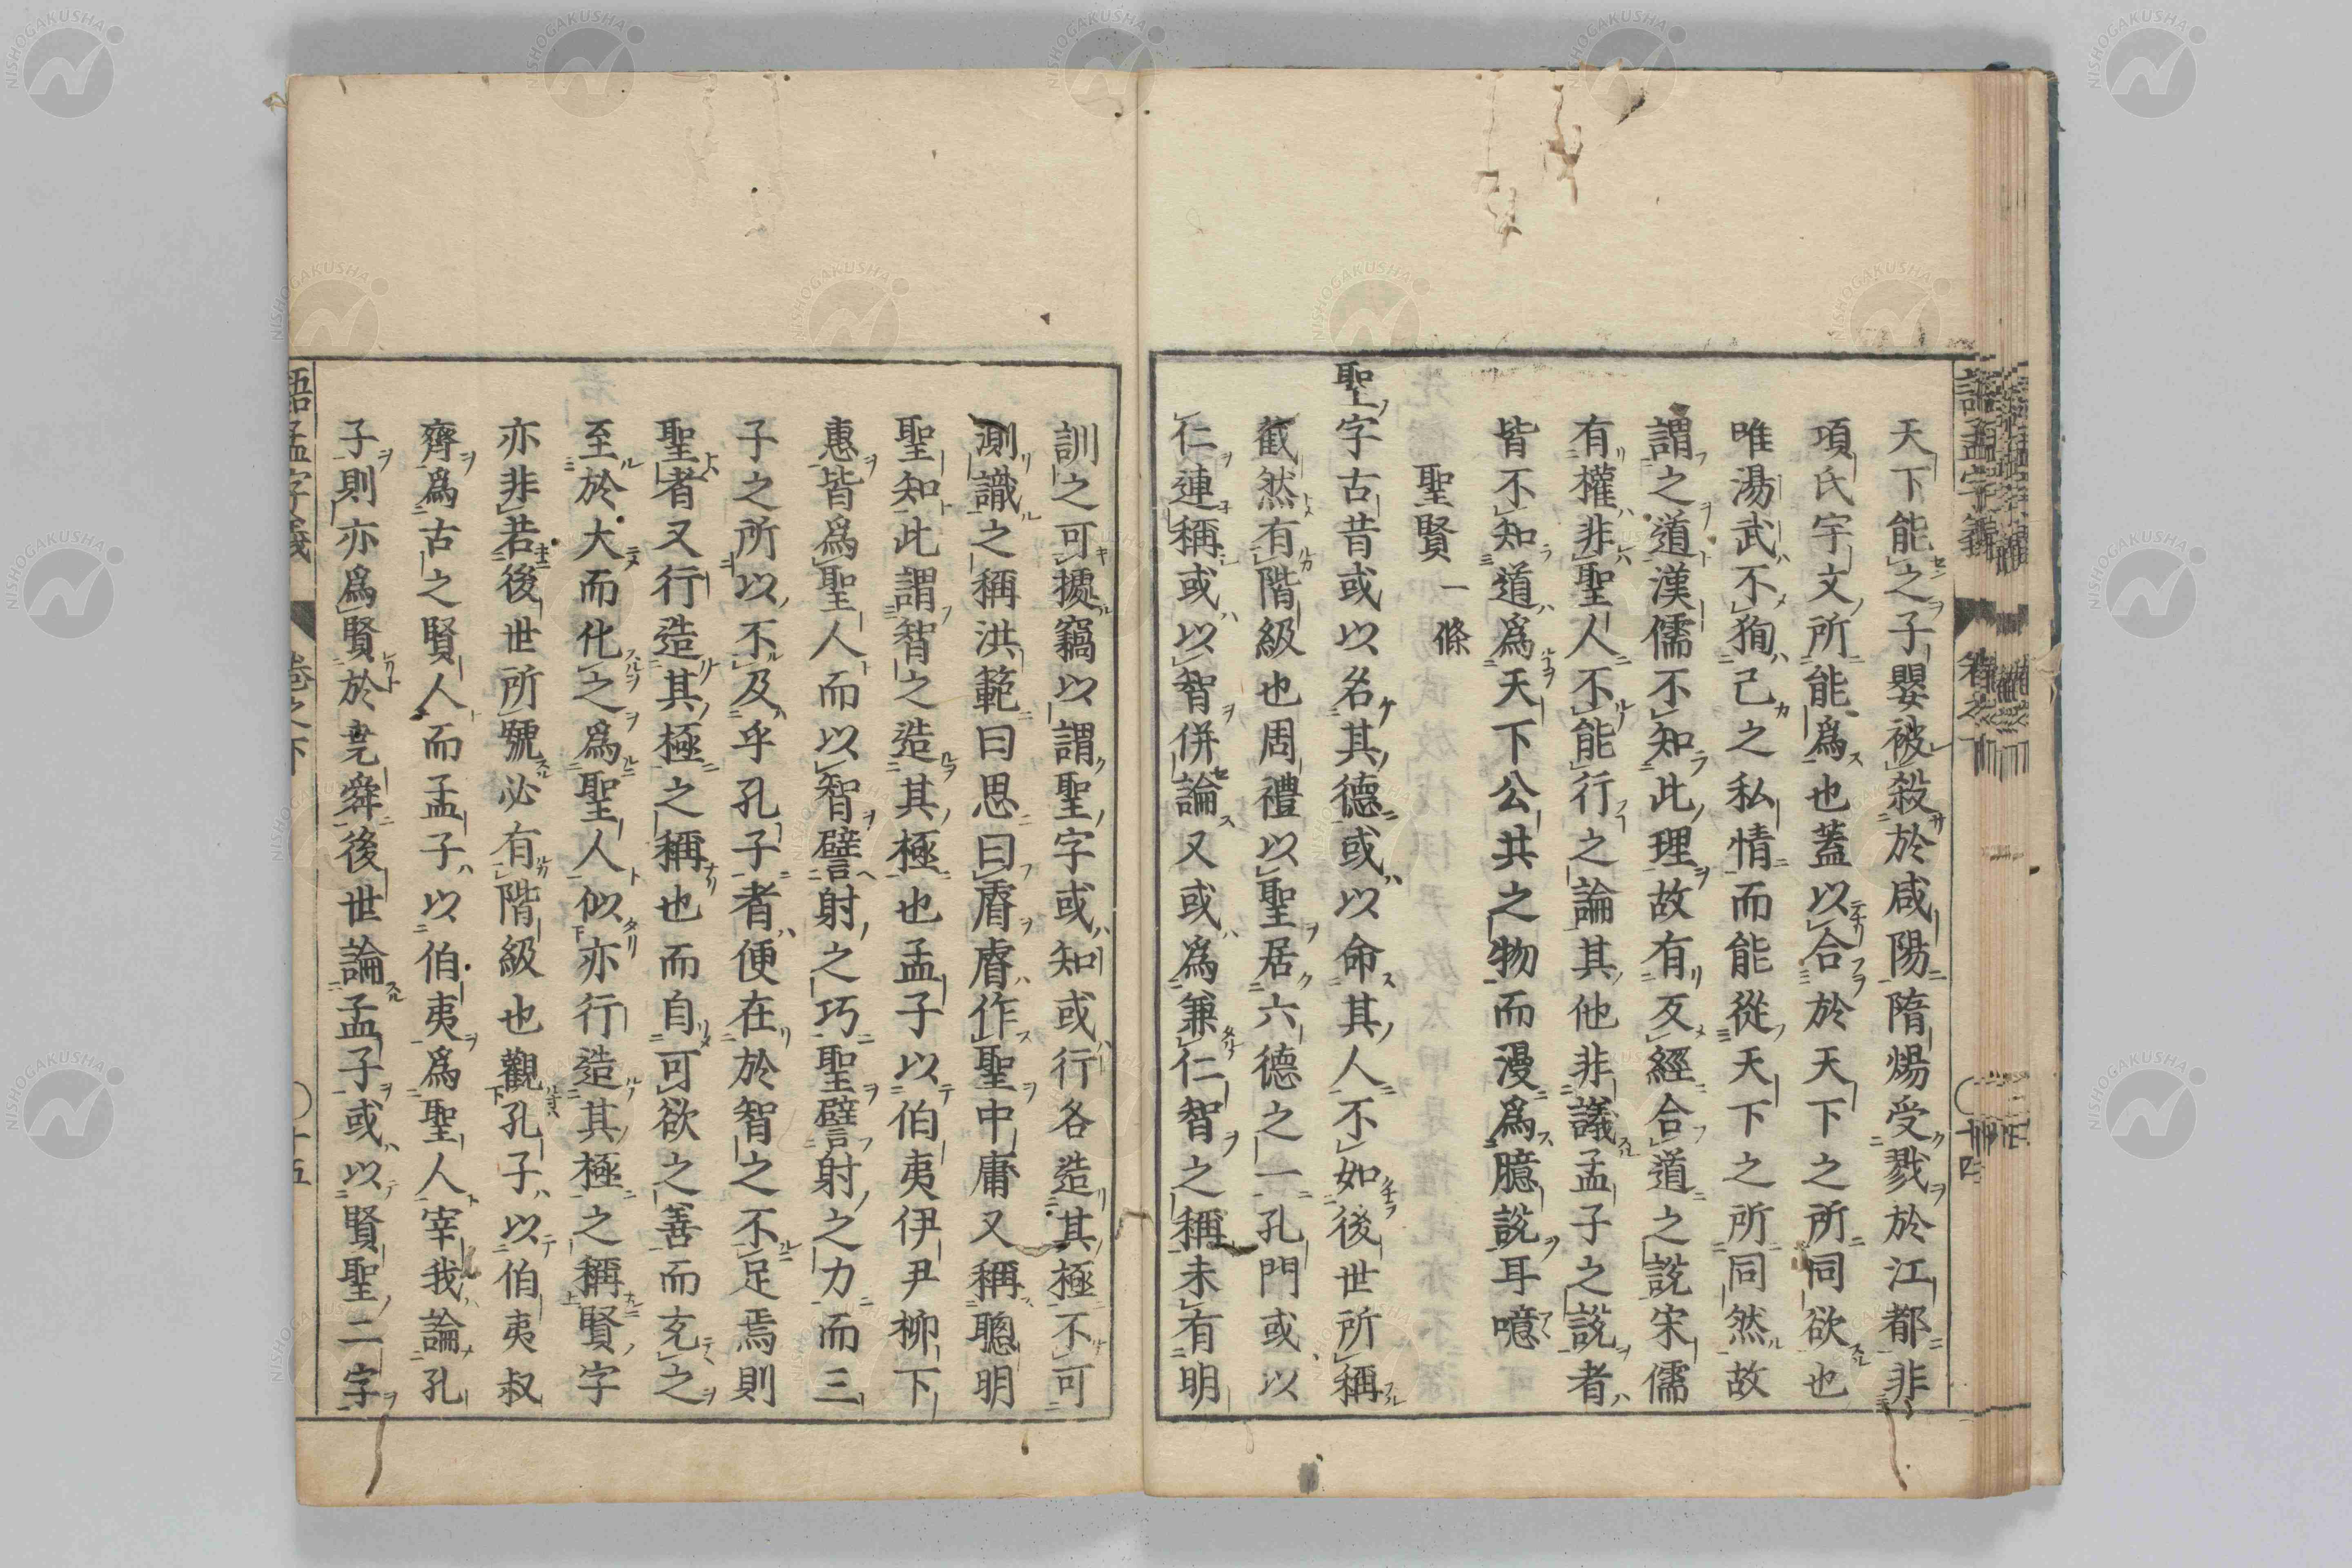 天下能之子嬰被殺於咸陽隋煬受戮於江都非
項氏宇文所能爲也蓋以合於天下之所同欲也
唯湯武不狥己之私情而能從天下之所同然故
謂之道漢儒不知此理故有反經合道之説宋儒
有權非聖人不能行之論其他非議孟子之説者
皆不知道爲天下公共之物而漫爲臆説耳噫
聖賢 一條
聖字古昔或以名其德或以命其人不如後世所稱
截然有階級也周禮以聖居六德之一孔門或以
仁連稱或以智併論又或爲兼仁智之稱未有明
訓之可據竊以謂聖字或知或行各造其極不可
測識之稱洪範曰思曰睿睿作聖中庸又稱聰明
聖知此謂智之造其極也孟子以伯夷伊尹柳下
惠皆爲聖人而以智譬射之巧聖譬射之力而三
子之所以不及乎孔子者便在於智之不足焉則
聖者又行造其極之稱也而自可欲之善而充之
至於大而化之爲聖人似亦行造其極之稱賢字
亦非若後世所號必有階級也觀孔子以伯夷叔
齊爲古之賢人而孟子以伯夷爲聖人宰我論孔
子則亦爲賢於堯舜後世論孟子或以賢聖二字
語孟字義 卷之下 十五